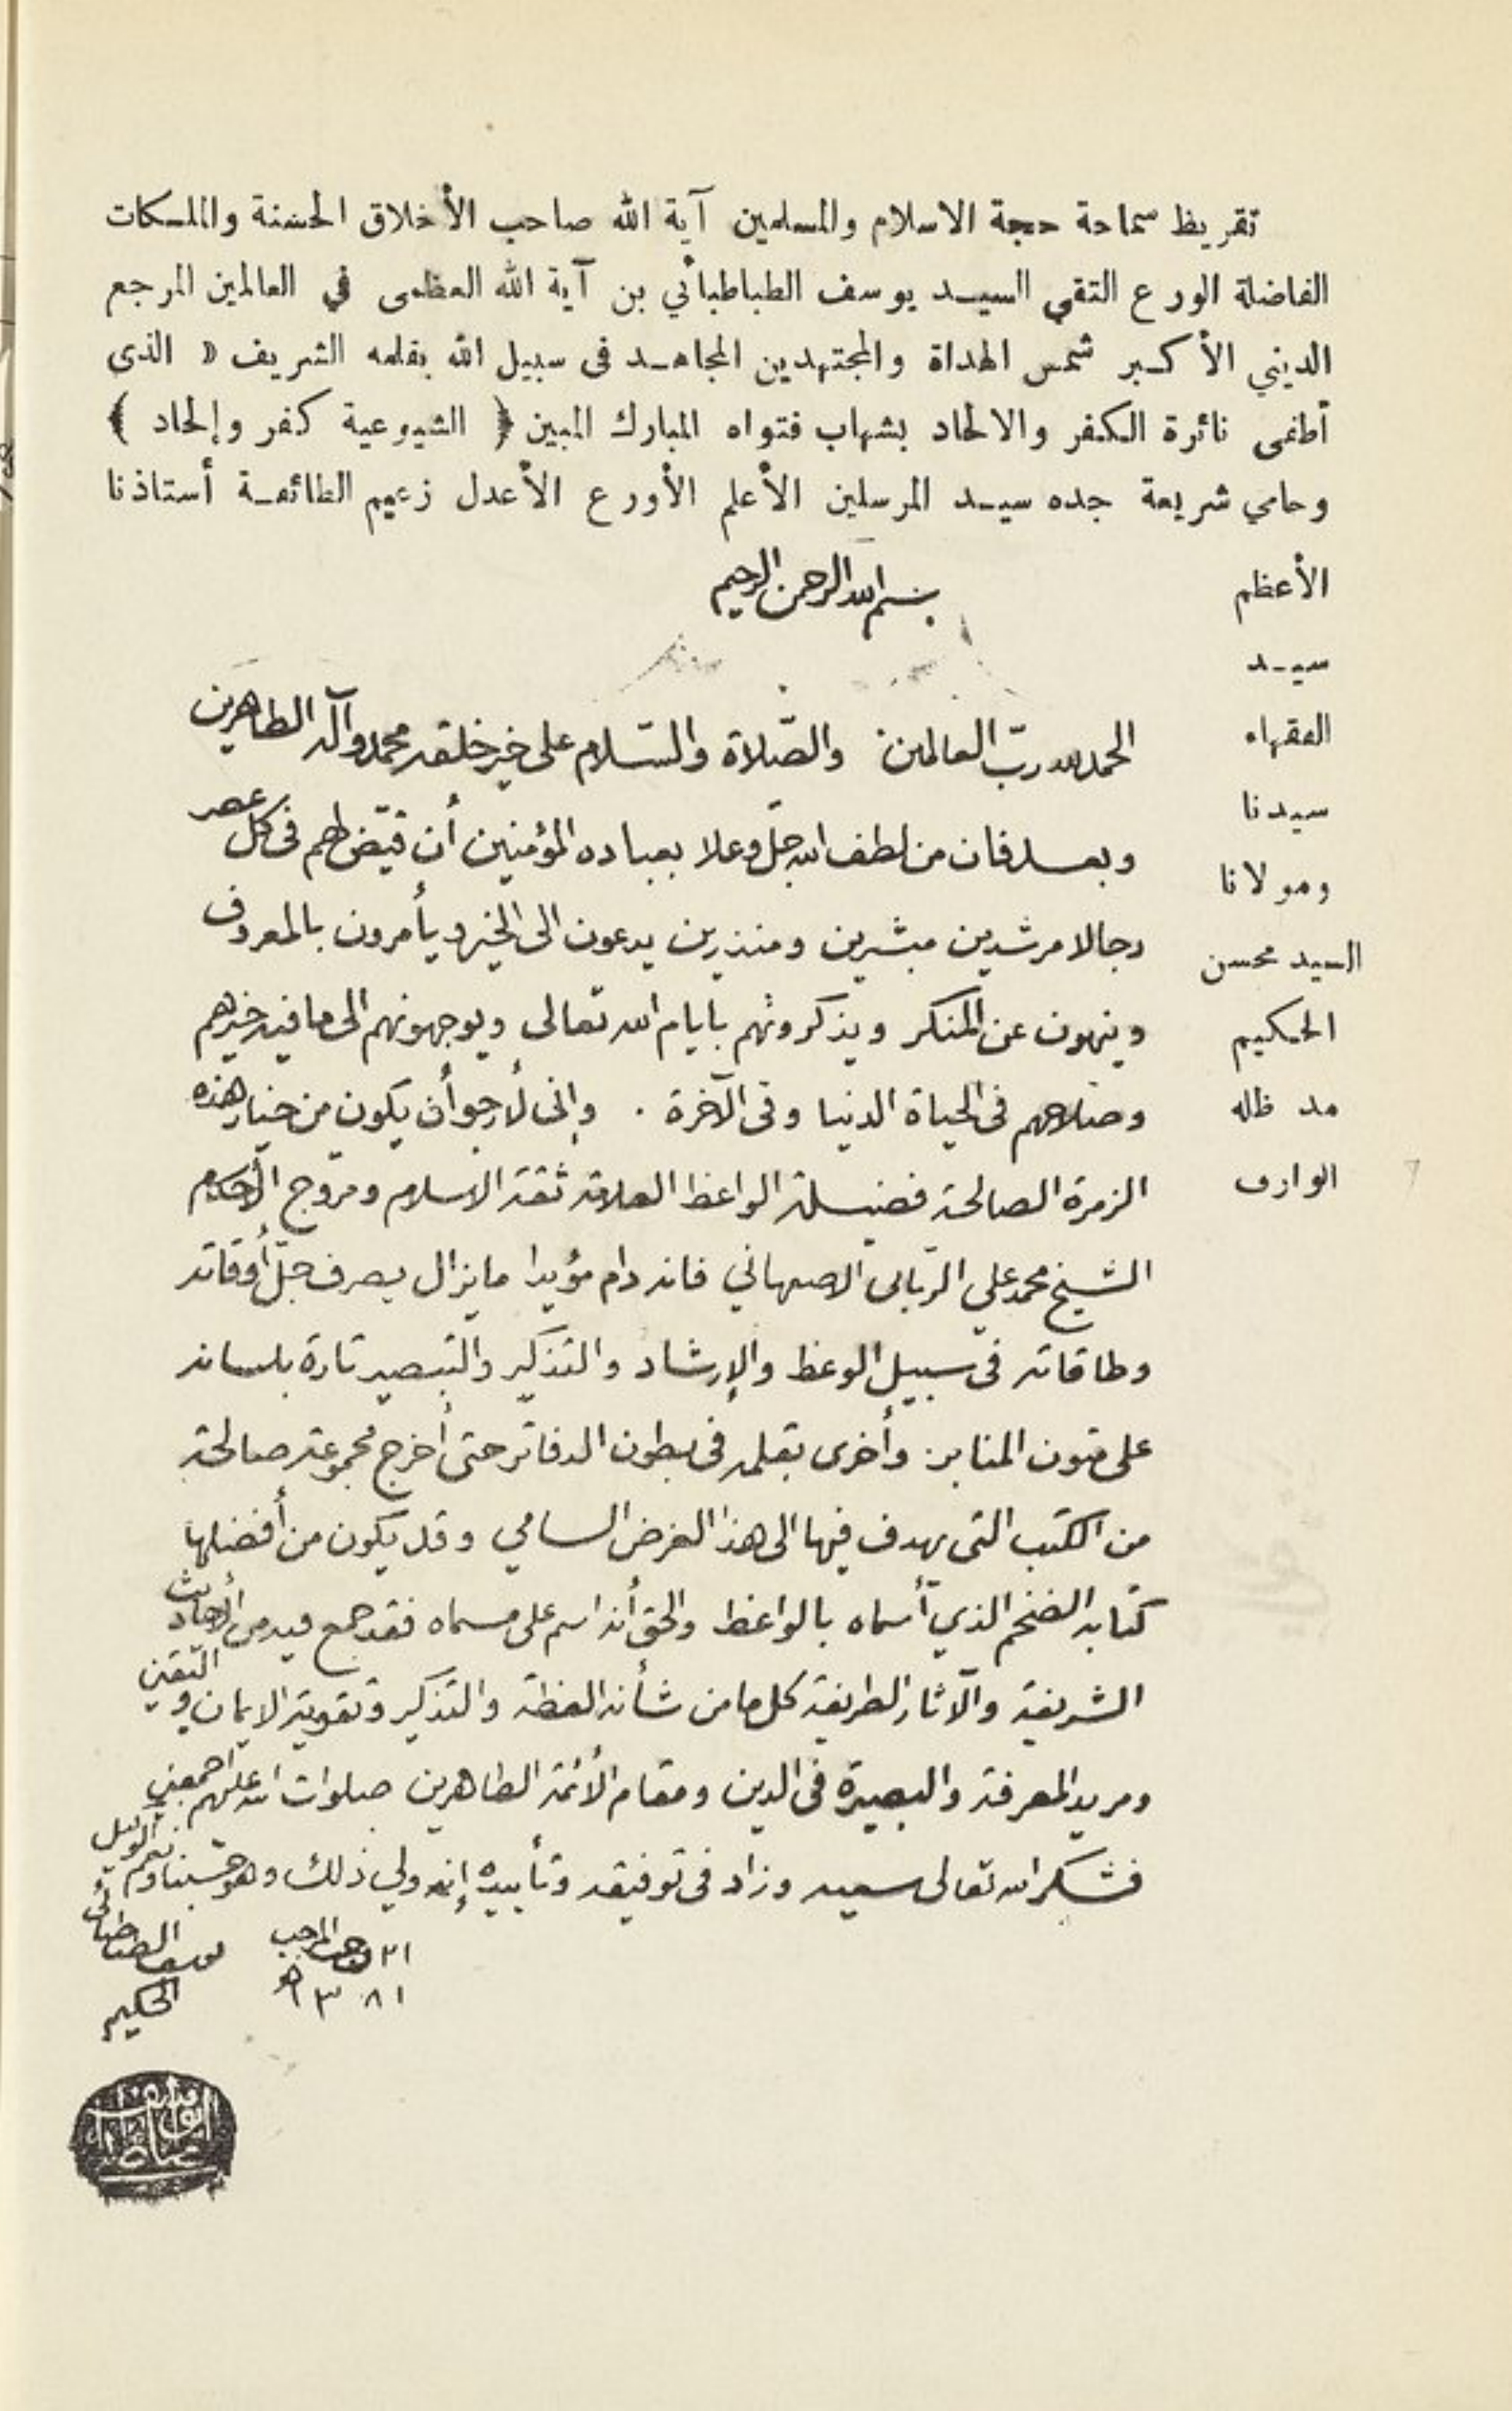 تقريظ سماحة حجة الاسلام والمسلمين آية الله صاحب الأخلاق الحسنة والملكات
الفاضلة الورع التقي السيد يوسف الطباطبائي بن آية الله العظمى في العالمين المرجع
الديني الأكبر شمس الهداة والمجتهدين المجاهد فى سبيل الله بقلمه الشريف « الذى
أطفى نائرة الكفر والالحاد بشهاب فتواه المبارك المبين ﴿ الشيوعية كفر وإلحاد ﴾
وحامي شريعة جده سيد المرسلين الأعلم الأورع الأعدل زعيم الطائفة أستاذنا
الأعظم
سيد
الفقهاء
سيدنا
ومولانا
السيد محسن
الحكيم
مد ظله
الوارف
بسم الله الرحمن الرحيم
الحمد لله ربّ العالمين والصّلاة والسّلام على خير خلقه محمد وآله الطاهرين
وبعد فان من لطف الله جلّ وعلا بعباده المؤمنين أن قيّض لهم فى كل عصر
رجالا مرشدين مبشرين ومنذرين يدعون الى الخير ويأمرون بالمعروف
وينهون عن المنكر ويذكرونهم بايام الله تعالى ويوجهونهم الى ما فيه خيرهم
وصلاحهم فى الحياة الدنيا وفى الآخرة . وإنى لأرجو أن يكون من خيار هذه
الزمرة الصالحة فضيلة الواعظ العلامة ثقة الاسلام ومروّج الأحكام
الشيخ محمد علي الرّبانى الاصبهاني فانه دام مؤيدا ما يزال يصرف جلّ أوقاته
وطاقاته فى سبيل الوعظ والإرشاد والتذكير والتبصير تارة بلسانه
على متون المنابر وأخرى بقلمه فى بطون الدفاتر حتى أخرج مجموعة صالحة
من الكتب التى يهدف فيها الى هذا الغرض السامي وقد يكون من أفضلها
كتابه الضخم الذي أسماه بالواعظ والحق أنه اسم على مسماه فقد جمع فيه من الأحاديث
الشريفة والآثار الطريفة كل ما من شأنه العظة والتذكير وتقوية الايمان واليقين
ومزيد المعرفة والبصيرة فى الدين ومقام الأئمة الطاهرين صلوات الله عليهم اجمعين
فشكر الله تعالى سعيه وزاد فى توفيقه وتأييده إنه ولي ذلك وهو حسبنا ونعم الوكيل
رجب المرجب
١٣٨١ هـ
يوسف الطباطبائى
الحكيم